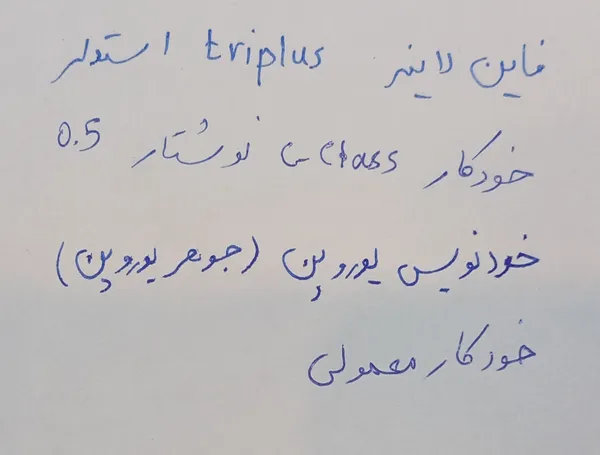 فاین لاینر triplus استدلر
خودکار C-Class نوشتار 0.5
خودنویس یوروپن (جوهر یوروپن)
خودکار معمولی